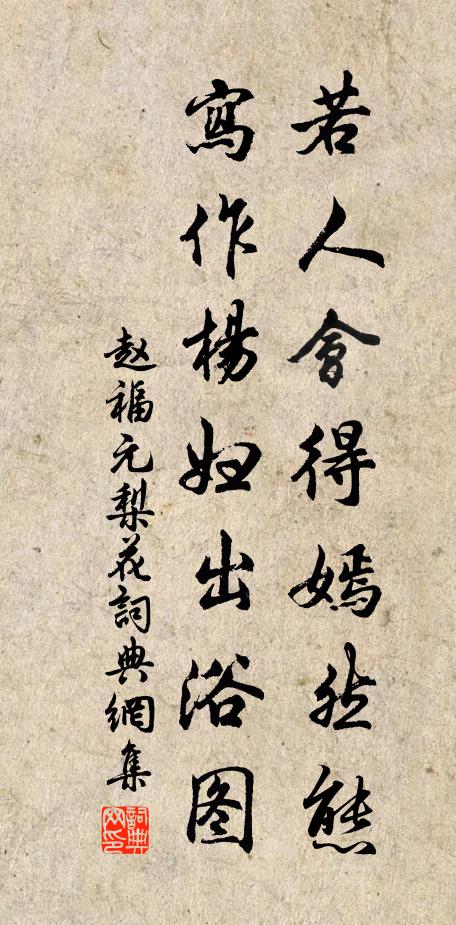 若人會得嫣然態
寫作楊妃出浴图
赵福元梨花詞典網集
詞典網印